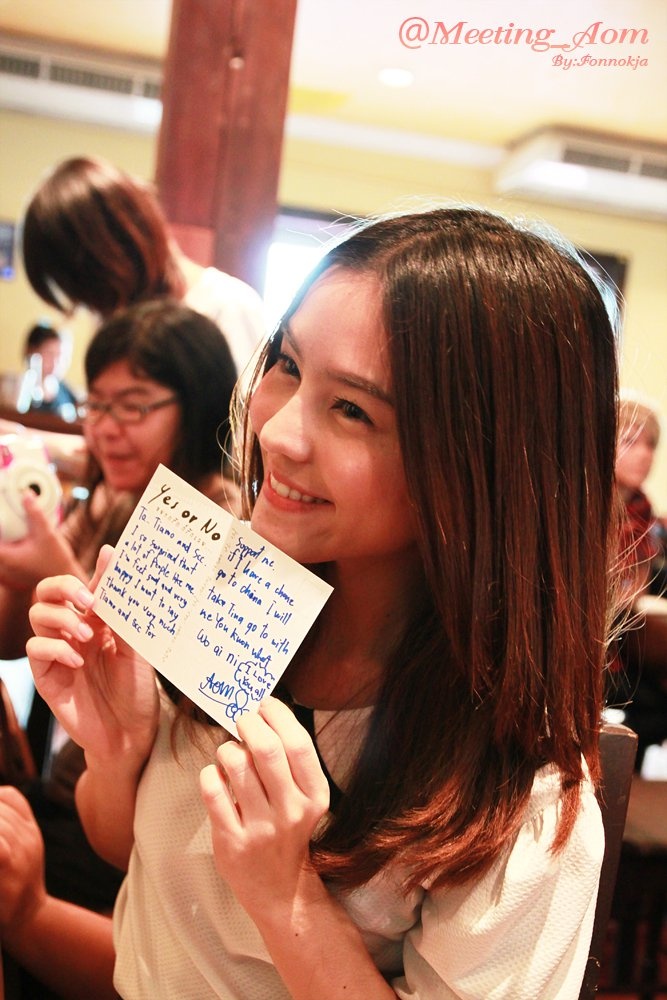 @Meeting_Aom
By:Fonnokja
Yes or No
Ta.. Tiamo and Sec
I so surprised that
a lot of people like me
I'm feel good and very
happy I want to say
thank you very much
Tiamo and Sec for
Support me
if I have a chane
go to china I will
take Ting go to with
me You kuon what
Wo ai ni
I Love
You all
Aom